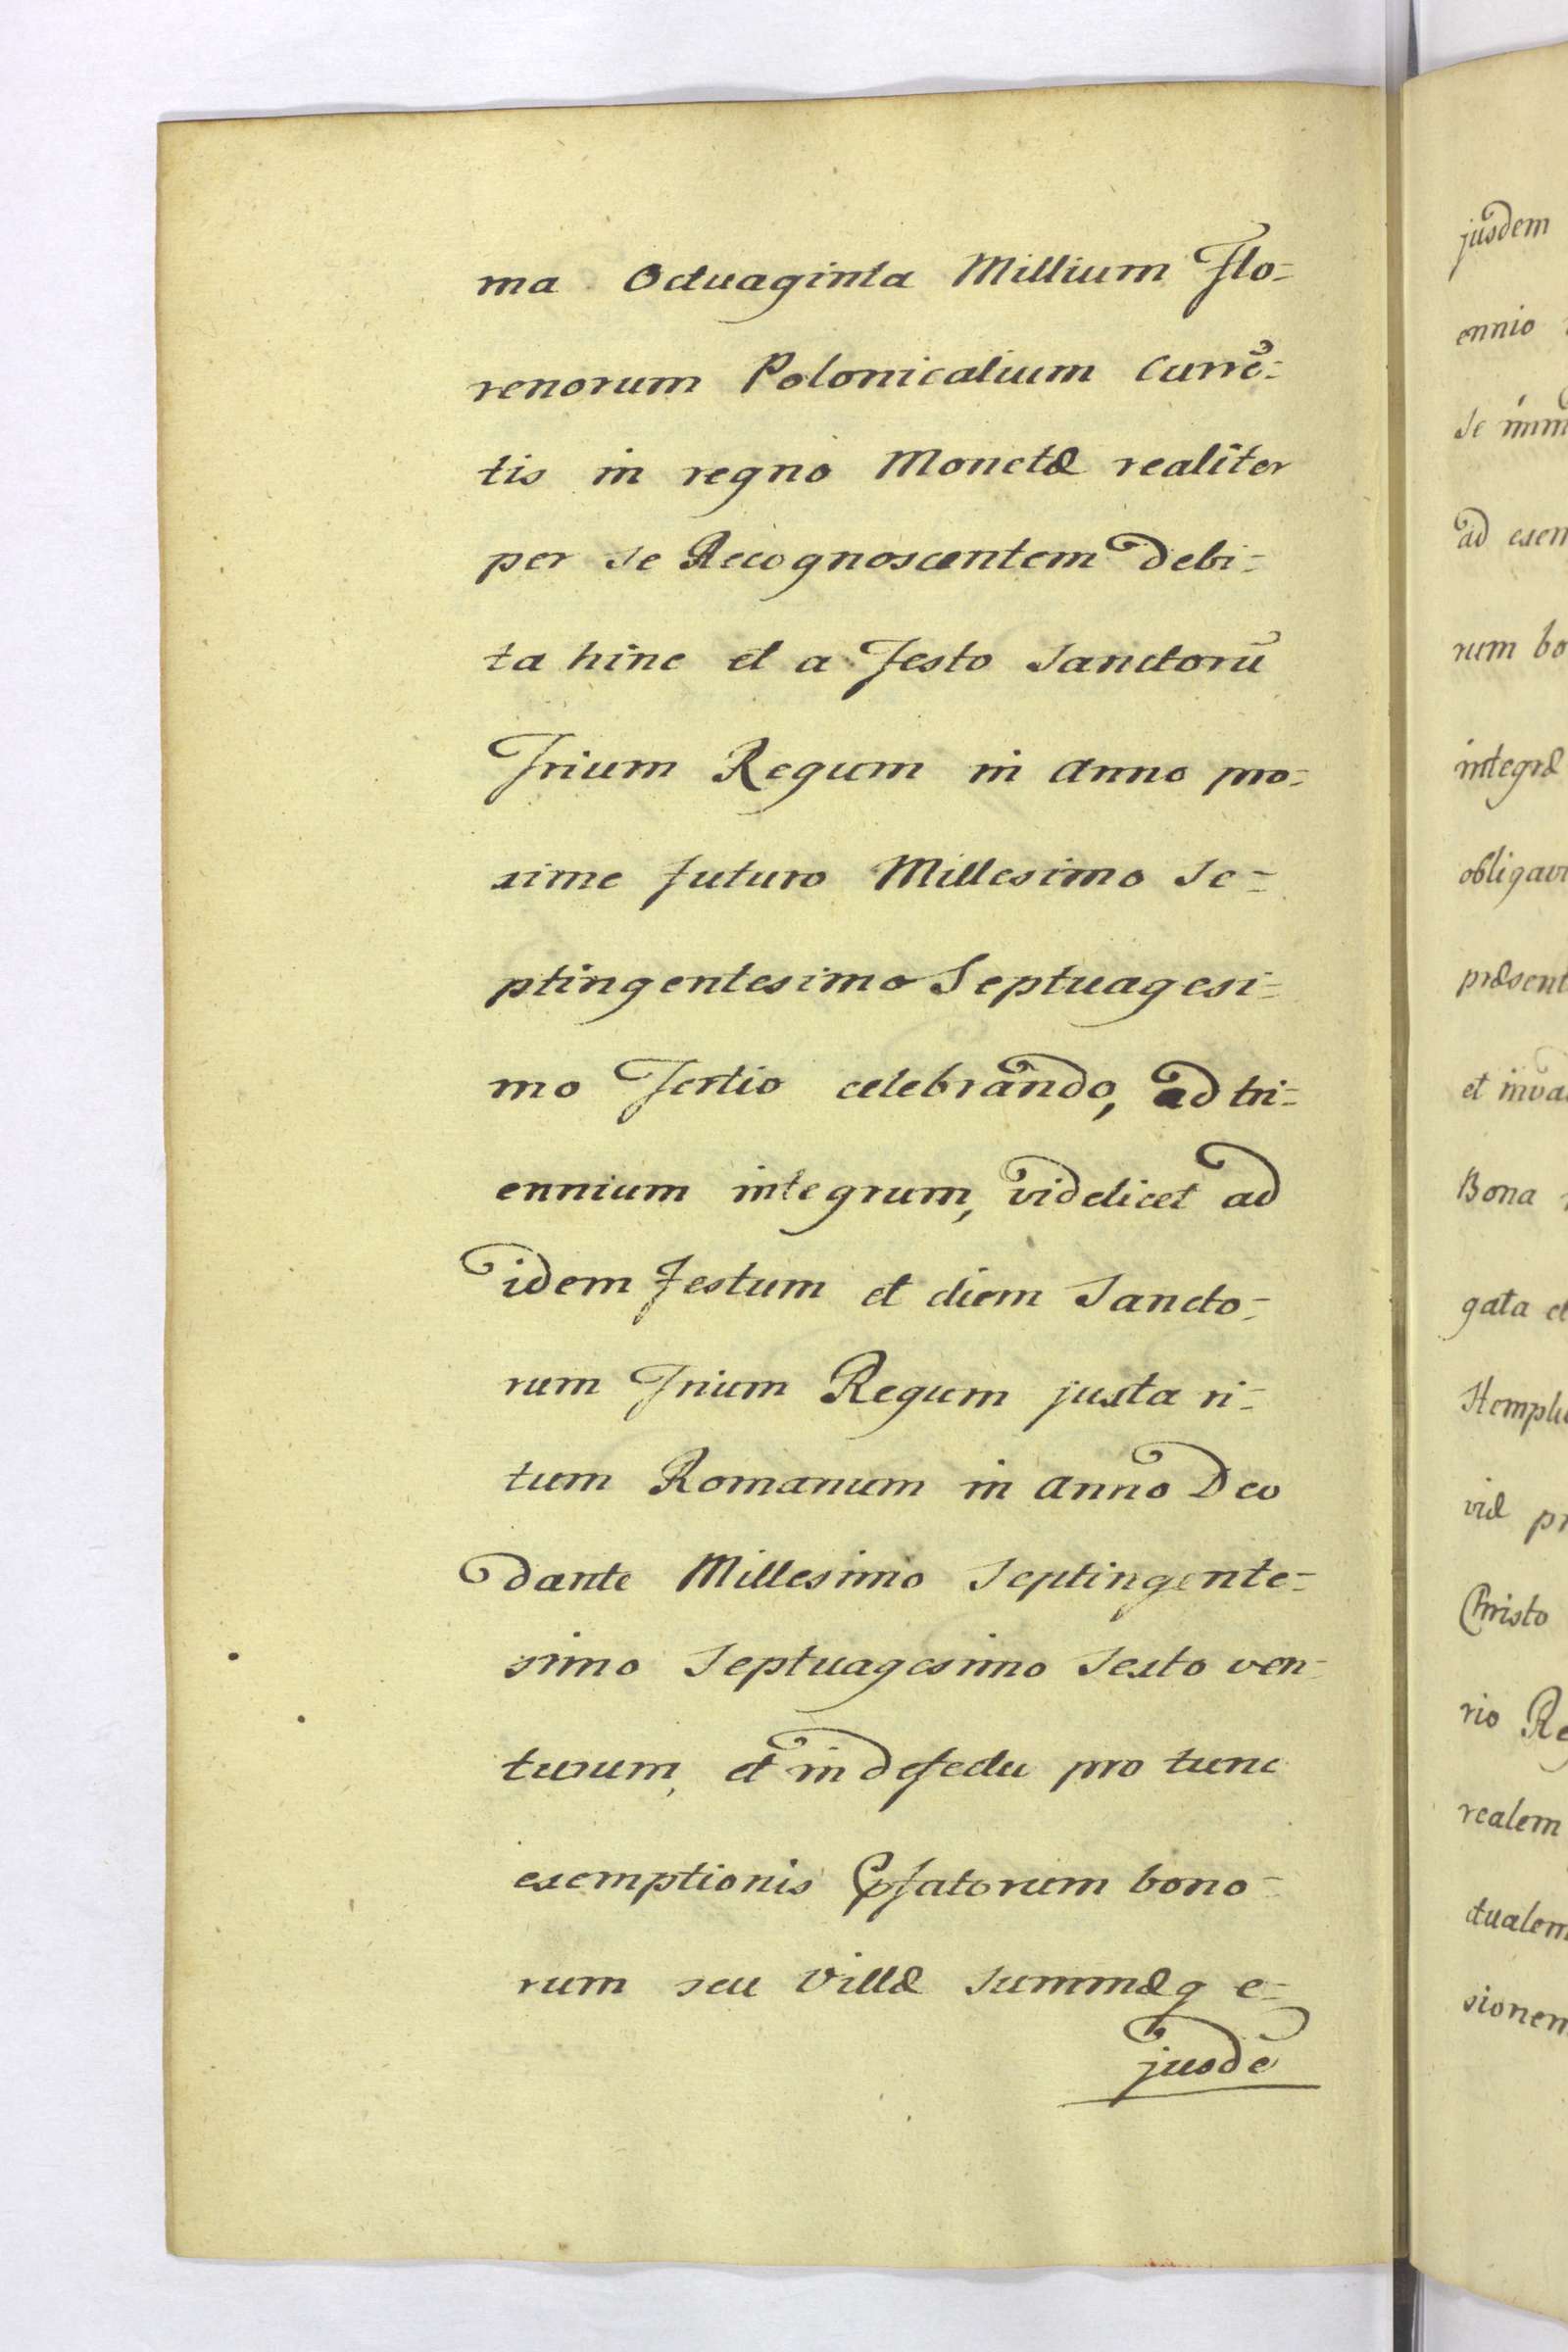 ma Octuaginta Millium Flo=
renorum Polonicalium Currē=
tis in regno Monetæ realiter
per se Recognoscentem debi=
ta hinc et a Festo Sanctorū
Trium Regum in Anno pro=
xime futuro Millesimo Se=
ptingentesimo Septuagesi=
mo Tertio celebrando, ad tri=
ennium integrum, videlicet ad
idem Festum et diem Sancto=
rum Trium Regum juxta ri=
tum Romanum in Anno Deo
dante Millesimo Septingente=
simo Septuagesimo Sexto ven=
turum, et in defectu pro tunc
exemptionis pfatorum bono=
rum seu Villæ Summæq e=
jusdē
jusdem
ennio
se
ad exem
rum bo
integræ
obligavi
præsent
et inva
Bona
gata et
Hemplu
viæ pr
Christo
rio Re
realem
ctualem
sionem